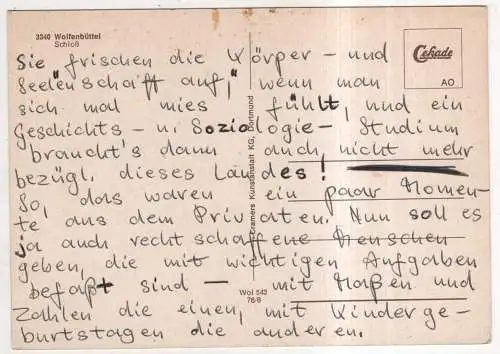 3340 Wolfenbüttel
Schloß
Cekade
AO
Sie frischen die Körper - und
Seelenschaft auf," wenn man
sich mal mies fühlt, und ein
Geschichts - u. Soziologie - Studium
braucht's dann auch nicht mehr
bezügl. dieses Landes!
So, das waren ein paar Momen-
te aus dem Privaten. Nun soll es
ja auch rechtschaffene Menschen
geben, die mit wichtigen Aufgaben
befaßt sind - mit Maßen und
Zahlen die einen, mit Kinderge-
burtstagen die anderen.
Cramers Kunstanstalt KG, Dortmund
Wol 543
76/8